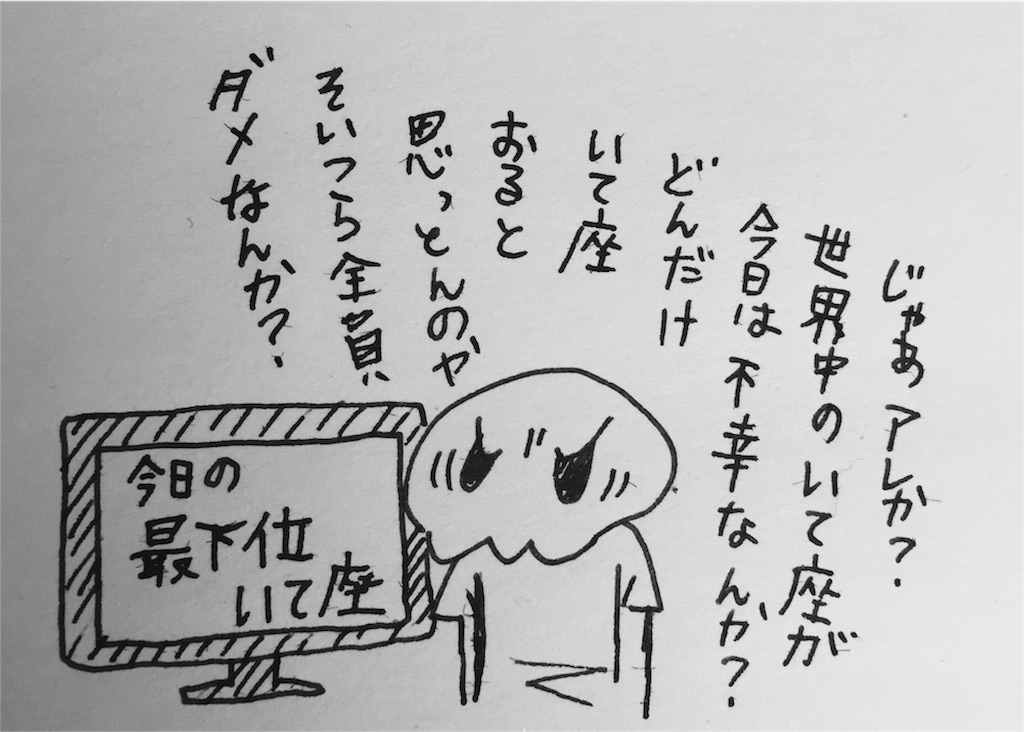 じゃあアレか?
世界中のいて座が
今日は不幸なんか?
どんだけ
いて座
おると
思っとんのや
そいつら全員
ダメなんか?
今日の
最下位
いて座